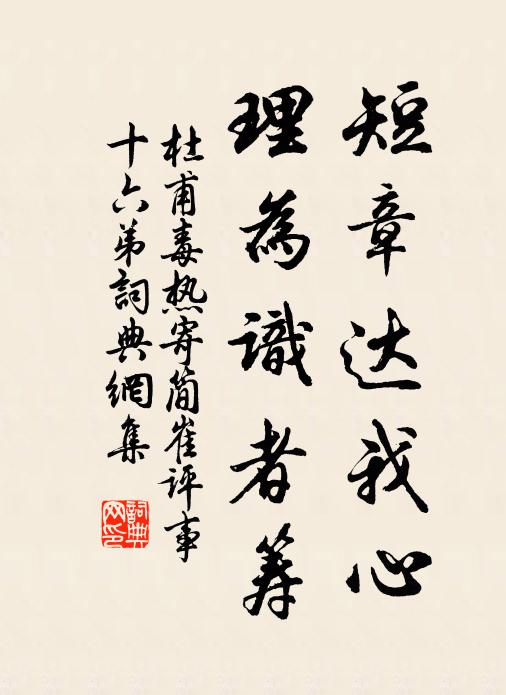 短章达我心
理為識者筹
杜甫毒热寄简崔评事
十六弟詞典網集
詞典网印